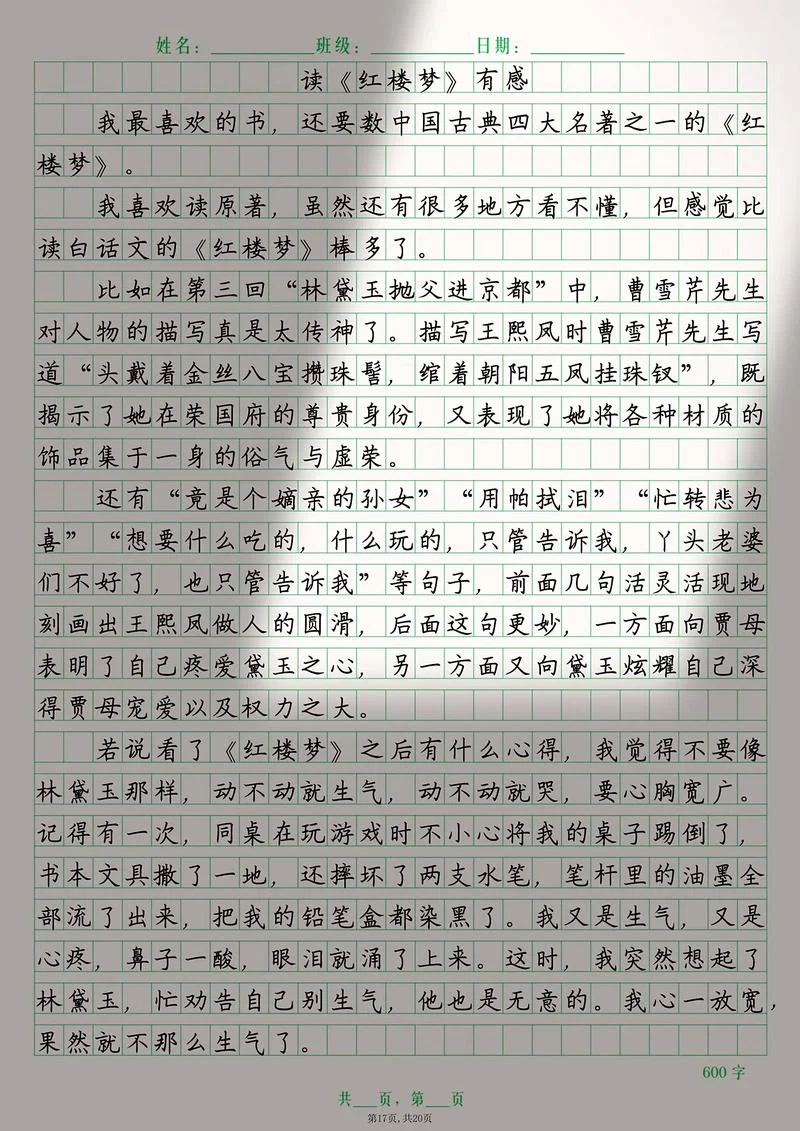 姓名：__________班级：__________日期：__________
读《红楼梦》有感
我最喜欢的书，还要数中国古典四大名著之一的《红
楼梦》。
我喜欢读原著，虽然还有很多地方看不懂，但感觉比
读白话文的《红楼梦》棒多了。
比如在第三回“林黛玉抛父进京都”中，曹雪芹先生
对人物的描写真是太传神了。描写王熙凤时曹雪芹先生写
道“头戴着金丝八宝攒珠髻，绾着朝阳五凤挂珠钗”，既
揭示了她在荣国府的尊贵身份，又表现了她将各种材质的
饰品集于一身的俗气与虚荣。
还有“竟是个嫡亲的孙女”“用帕拭泪”“忙转悲为
喜”“想要什么吃的，什么玩的，只管告诉我，丫头老婆
们不好了，也只管告诉我”等句子，前面几句活灵活现地
刻画出王熙凤做人的圆滑，后面这句更妙，一方面向贾母
表明了自己疼爱黛玉之心，另一方面又向黛玉炫耀自己深
得贾母宠爱以及权力之大。
若说看了《红楼梦》之后有什么心得，我觉得不要像
林黛玉那样，动不动就生气，动不动就哭，要心胸宽广。
记得有一次，同桌在玩游戏时不小心将我的桌子踢倒了，
书本文具撒了一地，还摔坏了两支水笔，笔杆里的油墨全
部流了出来，把我的铅笔盒都染黑了。我又是生气，又是
心疼，鼻子一酸，眼泪就涌了上来。这时，我突然想起了
林黛玉，忙劝告自己别生气，他也是无意的。我心一放宽，
果然就不那么生气了。
600 字
共___页，第___页
第17页,共20页